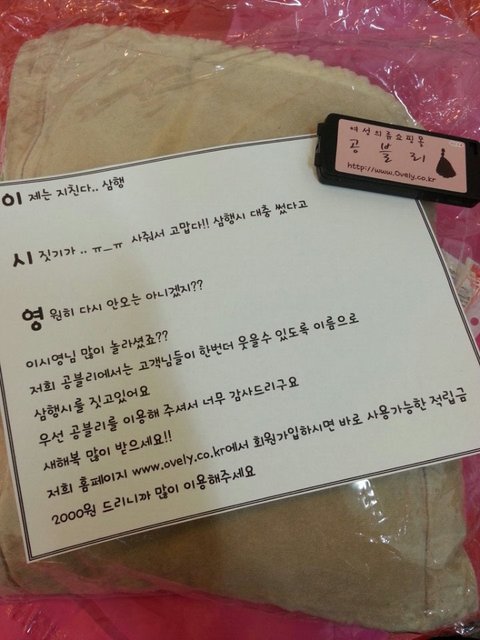 여성의류쇼핑몰
공블리
http://www.Ovely.co.kr
이 제는 지친다.. 삼행
시 짓기가 .. ㅠ_ㅠ 사줘서 고맙다!! 삼행시 대충 썼다고
영 원히 다시 안오는 아니겠지??
이시영님 많이 놀라셨죠??
저희 공블리에서는 고객님들이 한번더 웃을수 있도록 이름으로
삼행시를 짓고있어요
우선 공블리를 이용해 주셔서 너무 감사드리구요
새해복 많이 받으세요!!
저희 홈페이지 www.ovely.co.kr에서 회원가입하시면 바로 사용가능한 적립금
2000원 드리니까 많이 이용해주세요